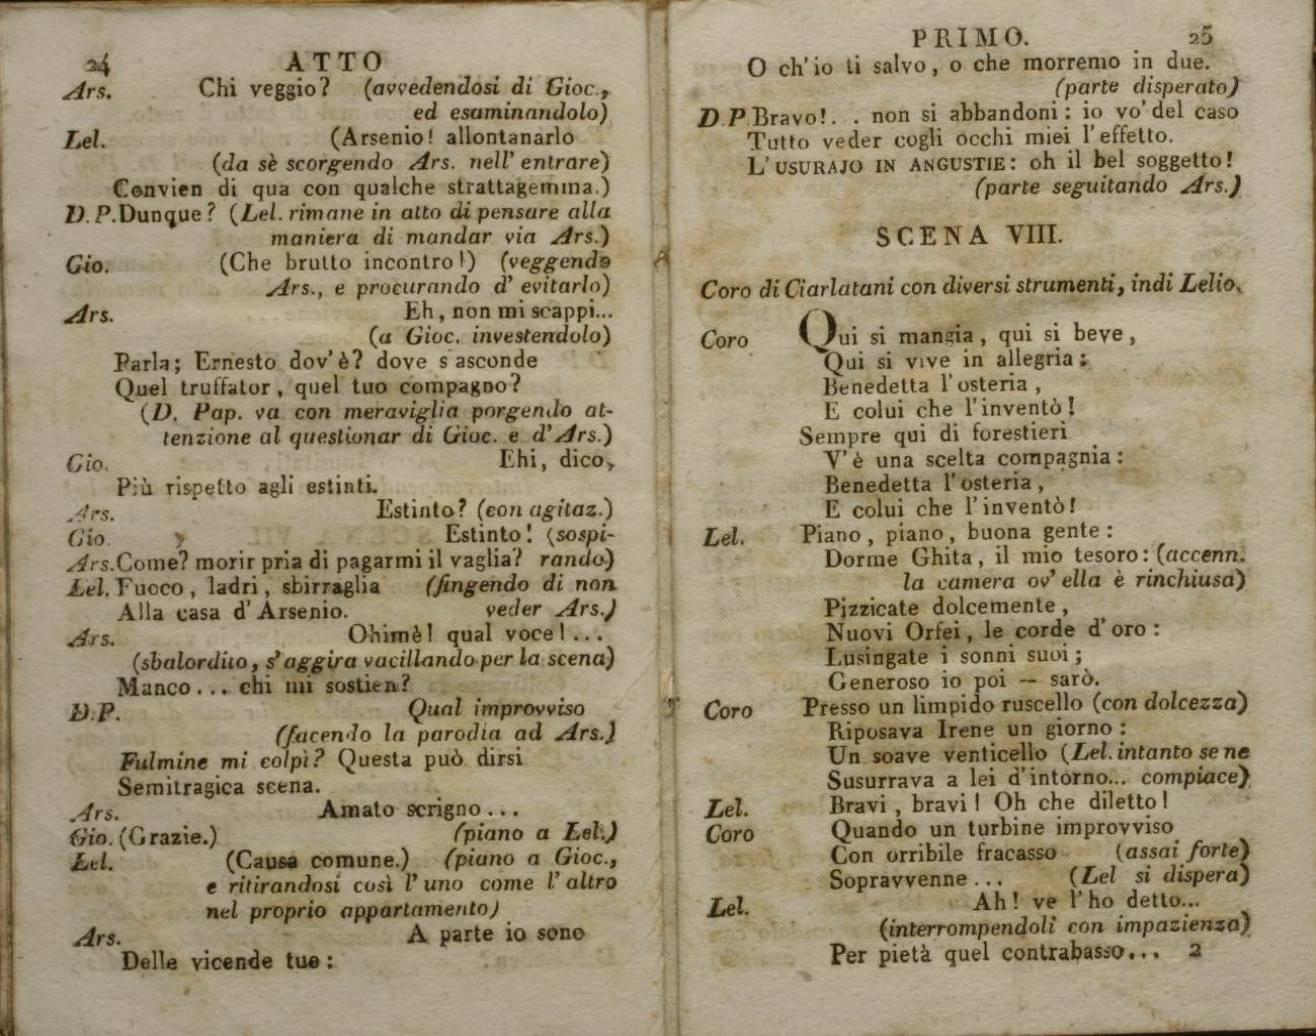 24 ATTO
Ars. Chi veggio? (avvedendosi di Gioc.,
ed esaminandolo)
Lel. (Arsenio! allontanarlo
(da sè scorgendo Ars. nell' entrare)
Convien di qua con qualche strattagemma.)
D. P. Dunque? (Lel. rimane in atto di pensare alla
maniera di mandar via Ars.)
Gio. (Che brutto incontro!) (veggendo
Ars., e procurando d' evitarlo)
Ars. Eh, non mi scappi...
(a Gioc. investendolo)
Parla; Ernesto dov'è? dove s'asconde
Quel truffator, quel tuo compagno?
(D. Pap. va con meraviglia porgendo at-
tenzione al questionar di Gioc. e d'Ars.)
Gio. Ehi, dico,
Più rispetto agli estinti.
Ars. Estinto? (con agitaz.)
Gio. Estinto! (sospi-
Ars. Come? morir pria di pagarmi il vaglia? rando)
Lel. Fuoco, ladri, sbirraglia (fingendo di non
Alla casa d'Arsenio. veder Ars.)
Ars. Ohimè! qual voce!...
(sbalordito, s'aggira vacillando per la scena)
Manco... chi mi sostien?
D.P. Qual improvviso
(facendo la parodia ad Ars.)
Fulmine mi colpì? Questa può dirsi
Semitragica scena.
Ars. Amato scrigno...
Gio. (Grazie.) (piano a Lel.)
Lel. (Causa comune.) (piano a Gioc.,
e ritirandosi così l'uno come l'altro
nel proprio appartamento)
Ars. A parte io sono
Delle vicende tue:
PRIMO. 25
O ch'io ti salvo, o che morremo in due.
(parte disperato)
D. P. Bravo!. . non si abbandoni: io vo' del caso
Tutto veder cogli occhi miei l'effetto.
L'USURAJO IN ANGUSTIE: oh il bel soggetto!
(parte seguitando Ars.)
SCENA VIII.
Coro di Ciarlatani con diversi strumenti, indi Lelio.
Coro Qui si mangia, qui si beve,
Qui si vive in allegria:
Benedetta l'osteria,
E colui che l'inventò!
Sempre qui di forestieri
V'è una scelta compagnia:
Benedetta l'osteria,
E colui che l'inventò!
Lel. Piano, piano, buona gente:
Dorme Ghita, il mio tesoro: (accenn.
la camera ov' ella è rinchiusa)
Pizzicate dolcemente,
Nuovi Orfei, le corde d'oro:
Lusingate i sonni suoi;
Generoso io poi — sarò.
Coro Presso un limpido ruscello (con dolcezza)
Riposava Irene un giorno:
Un soave venticello (Lel. intanto se ne
Susurrava a lei d'intorno... compiace)
Lel. Bravi, bravi! Oh che diletto!
Coro Quando un turbine improvviso
Con orribile fracasso (assai forte)
Sopravvenne... (Lel si dispera)
Lel. Ah! ve l'ho detto...
(interrompendoli con impazienza)
Per pietà quel contrabasso... 2